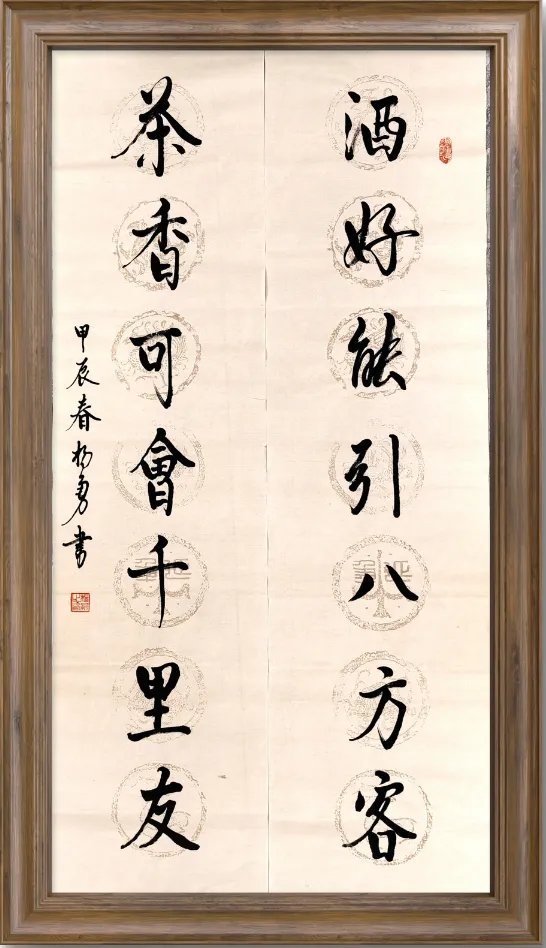 酒好能引八方客
茶香可會千里友
甲辰春杨勇书